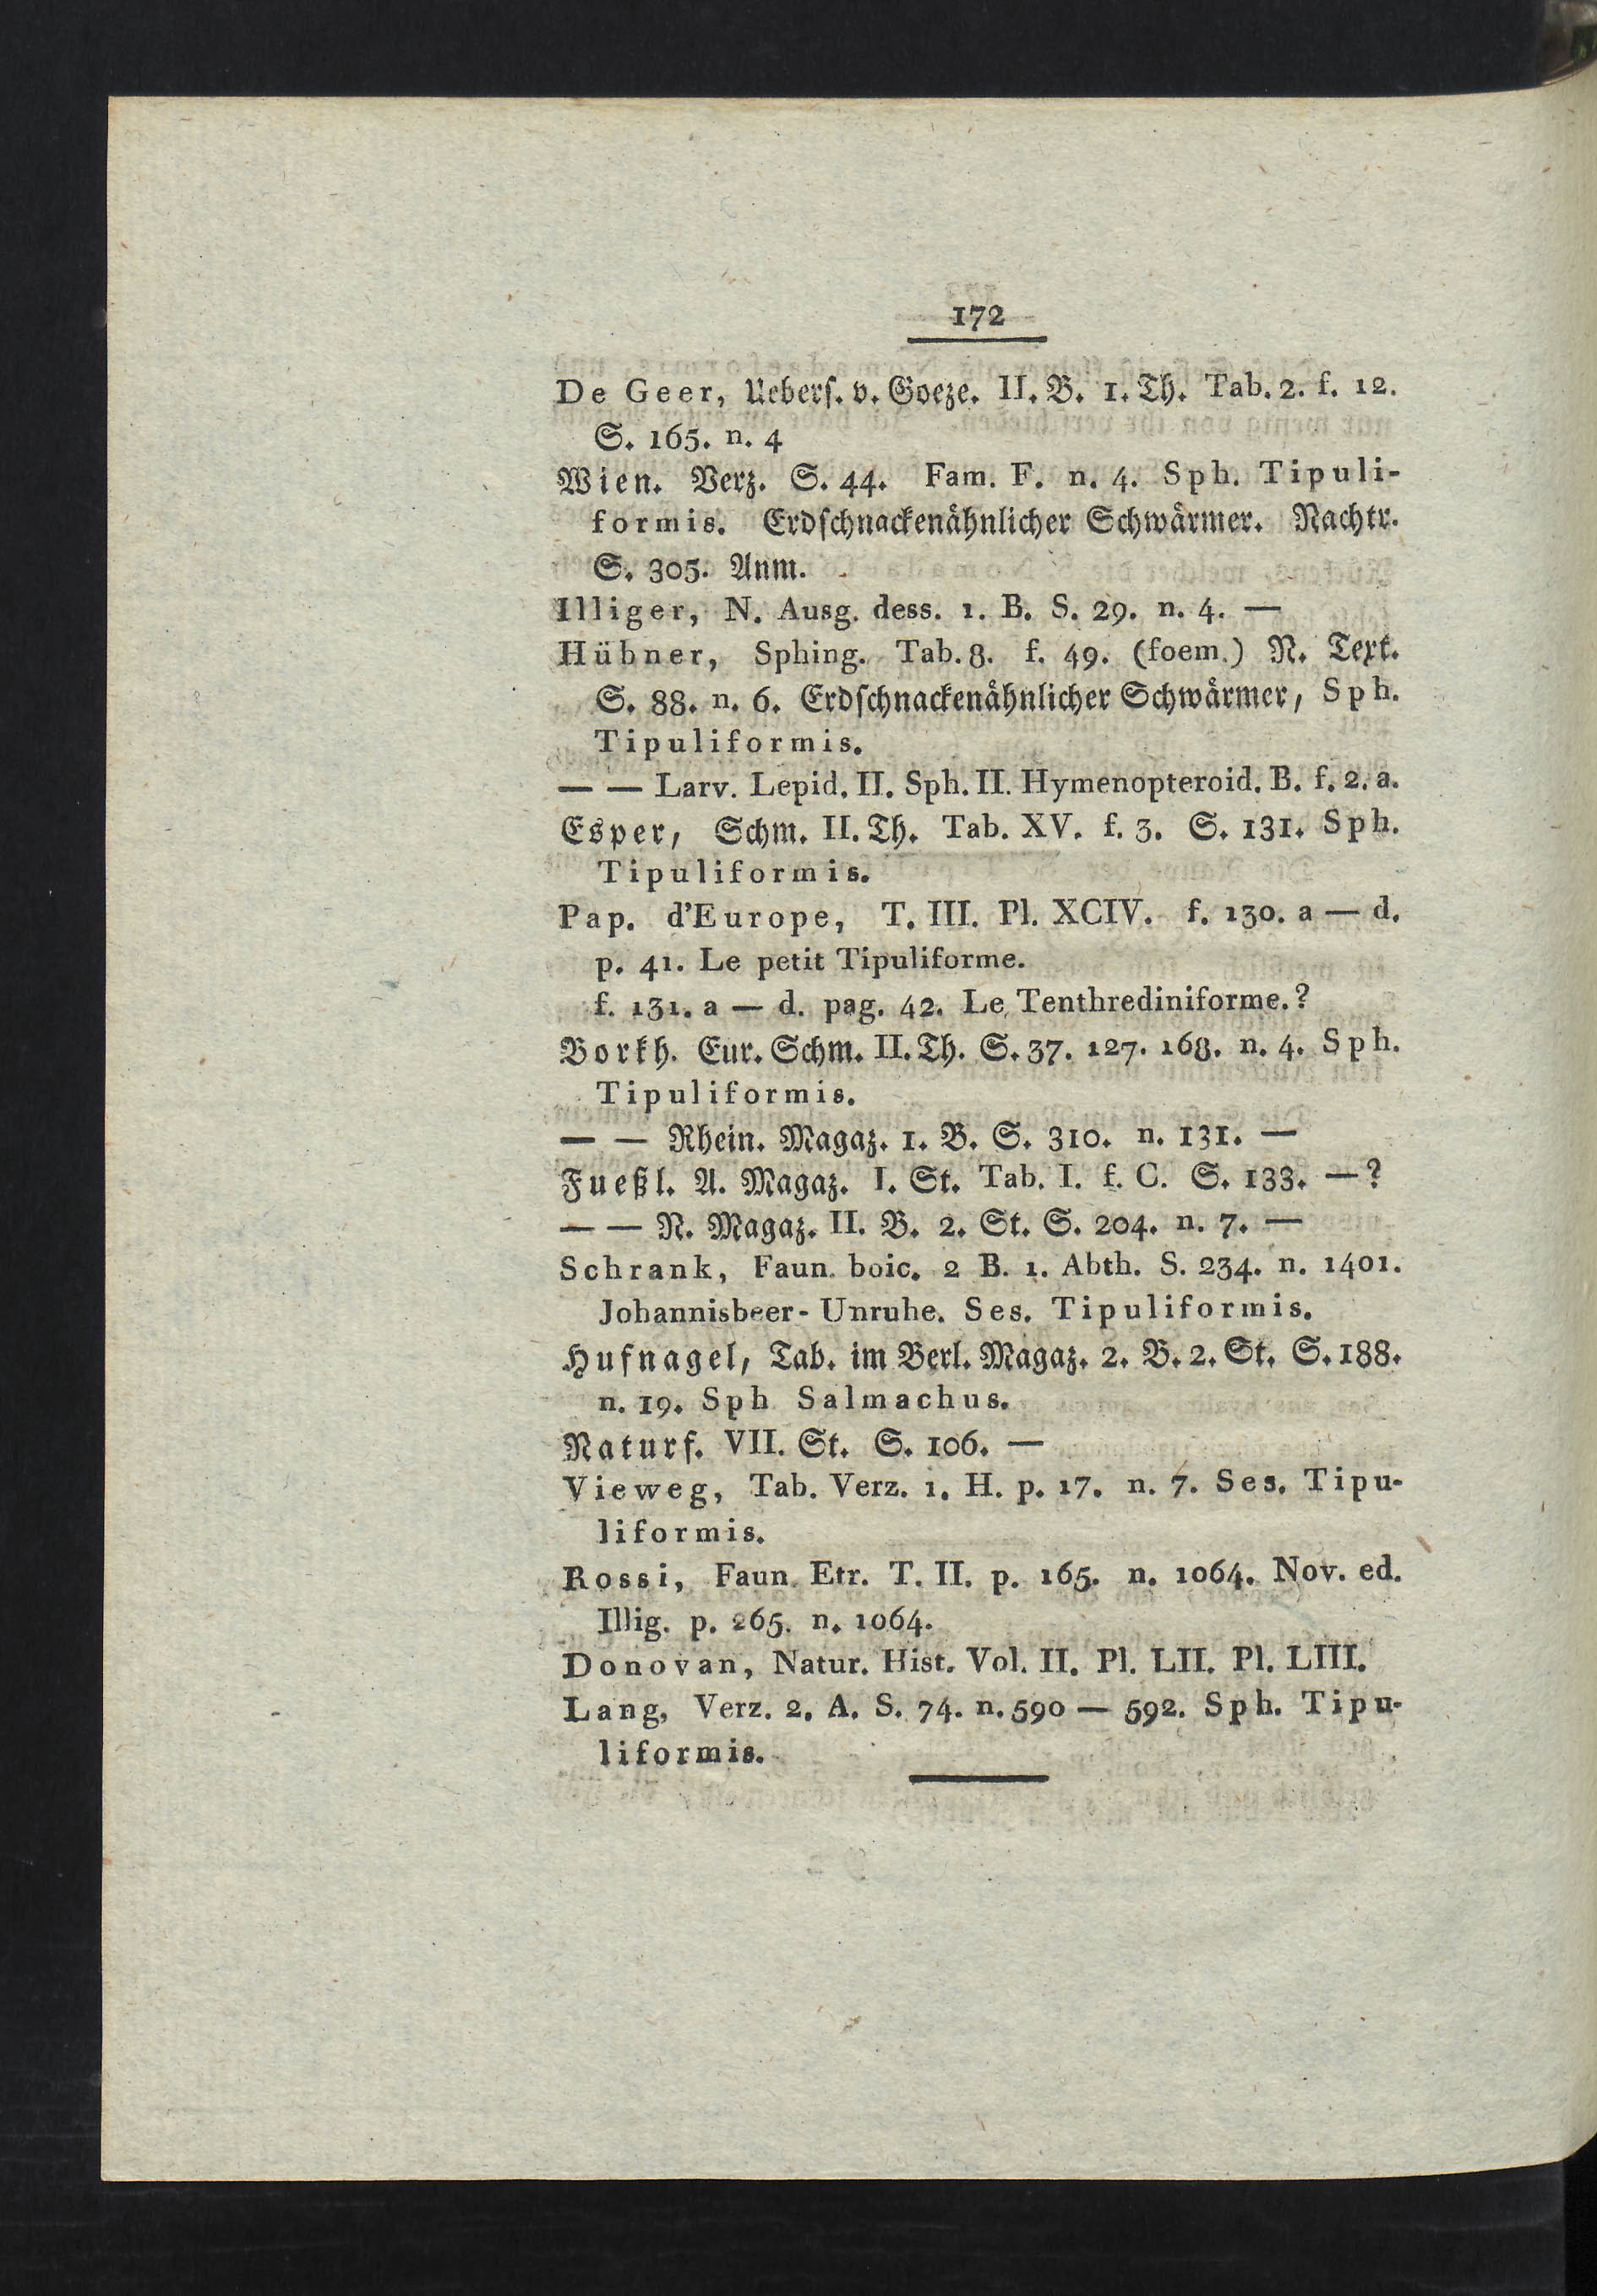 172
De Geer, Uebers. v. Goeze. II. B. 1. Th. Tab. 2. f. 12.
S. 165. n. 4
Wien. Verz. S. 44. Fam. F. n. 4. Sph. Tipuli-
formis. Erdschnackenähnlicher Schwärmer. Nachtr.
S. 305. Anm.
Illiger, N. Ausg. dess. 1. B. S. 29. n. 4. —
Hübner, Sphing. Tab. 8. f. 49. (foem.) N. Text.
S. 88. n. 6. Erdschnackenähnlicher Schwärmer, Sph.
Tipuliformis.
— — Larv. Lepid. II. Sph. II. Hymenopteroid. B. f. 2. a.
Esper, Schm. II. Th. Tab. XV. f. 3. S. 131. Sph.
Tipuliformis.
Pap. d'Europe, T. III. Pl. XCIV. f. 130. a — d.
p. 41. Le petit Tipuliforme.
f. 131. a — d. pag. 42. Le Tenthrediniforme.?
Borkh. Eur. Schm. II. Th. S. 37. 127. 168. n. 4. Sph.
Tipuliformis.
— — Rhein. Magaz. 1. B. S. 310. n. 131. —
Fueßl. A. Magaz. I. St. Tab. I. f. C. S. 133. — ?
— — N. Magaz. II. B. 2. St. S. 204. n. 7. —
Schrank, Faun. boic. 2 B. 1. Abth. S. 234. n. 1401.
Johannisbeer-Unruhe. Ses. Tipuliformis.
Hufnagel, Tab. im Berl. Magaz. 2. B. 2. St. S. 188.
n. 19. Sph Salmachus.
Naturf. VII. St. S. 106. —
Vieweg, Tab. Verz. 1. H. p. 17. n. 7. Ses. Tipu-
liformis.
Rossi, Faun. Etr. T. II. p. 165. n. 1064. Nov. ed.
Illig. p. 265. n. 1064.
Donovan, Natur. Hist. Vol. II. Pl. LII. Pl. LIII.
Lang, Verz. 2. A. S. 74. n. 590 — 592. Sph. Tipu-
liformis.